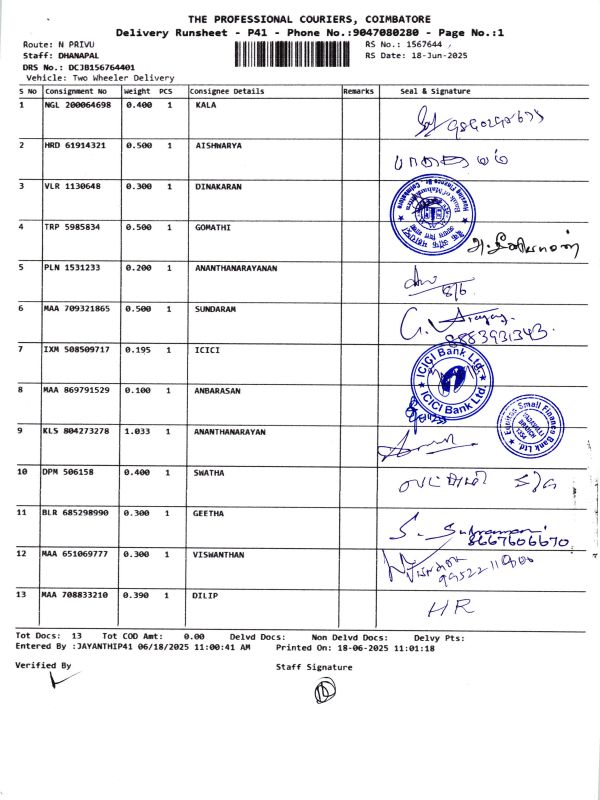 THE PROFESSIONAL COURIERS, COIMBATORE
Delivery Runsheet - P41 - Phone No.:9047080280 - Page No.:1
Route: N PRIVU RS No.: 1567644
Staff: DHANAPAL RS Date: 18-Jun-2025
DRS No.: DCJB156764401
Vehicle: Two Wheeler Delivery
S No Consignment No Weight PCS Consignee Details Remarks Seal & Signature
1 NGL 200064698 0.400 1 KALA
2 HRD 61914321 0.500 1 AISHWARYA
3 VLR 1130648 0.300 1 DINAKARAN
Bank of Maharashtra
4 TRP 5985834 0.500 1 GOMATHI
5 PLN 1531233 0.200 1 ANANTHANARAYANAN
6 MAA 709321865 0.500 1 SUNDARAM
8883931343
7 IXM 508509717 0.195 1 ICICI
ICICI Bank Ltd.
ICICI Bank Ltd.
8 MAA 869791529 0.100 1 ANBARASAN
Equitas Small Finance Bank Ltd
9 KLS 804273278 1.033 1 ANANTHANARAYAN
10 DPM 506158 0.400 1 SWATHA
11 BLR 685298990 0.300 1 GEETHA
8667606670
12 MAA 651069777 0.300 1 VISWANTHAN
13 MAA 708833210 0.390 1 DILIP HR
Tot Docs: 13 Tot COD Amt: 0.00 Delvd Docs: Non Delvd Docs: Delvy Pts:
Entered By :JAYANTHIP41 06/18/2025 11:00:41 AM Printed On: 18-06-2025 11:01:18
Verified By Staff Signature